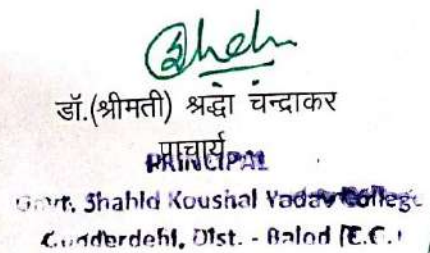 डॉ.(श्रीमती) श्रद्धा चन्द्राकर
प्राचार्य
PRINCIPAL
Govt. Shahid Koushal Yadav College
Gunderdehi, Dist. - Balod (C.G.)